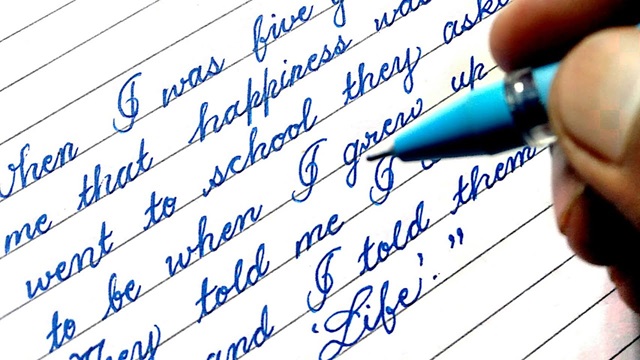 When I was five y
me that happiness was
went to school they aske
to be when I grew up
They told me I
and I told them
'Life'."